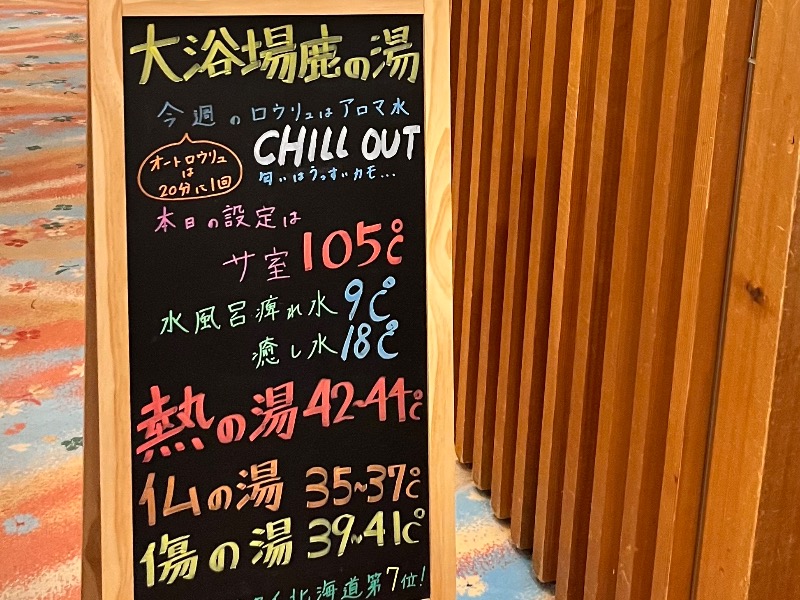 大浴場鹿の湯
今週のロウリュはアロマ水
CHILL OUT
匂いはうっすいカモ...
オートロウリュ
は
20分に1回
本日の設定は
サ室105℃
水風呂痺れ水9℃
癒し水18℃
熱の湯42~44℃
仏の湯 35~37℃
傷の湯39~41℃
北海道第7位!